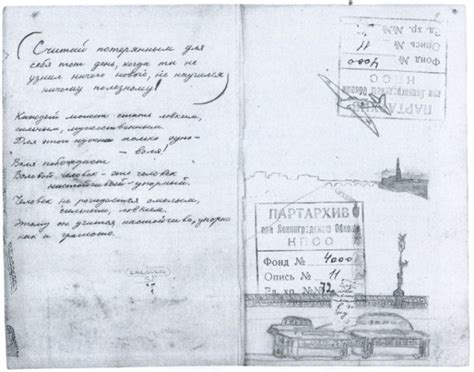 Считай потерянным для
себя тот день, когда ты не
узнал ничего нового, не научился
ничему полезному!
Каждый может стать ловким,
сильным, мужественным.
Для этого нужна только одно-
воля!
Воля побеждает
Волевой человек - это человек
настойчивый - упорный.
Человек не рождается смелым,
сильным, ловким.
Этому он учится настойчиво, упорно
как и грамоте.
ПАРТАРХИВ
при Ленинградском Обкоме
КПСС
Фонд № 4000
Опись № 11
Ед. хр. №№
ПАРТАРХИВ
при Ленинградском Обкоме
КПСС
Фонд № 4000
Опись № 11
Ед. хр. №№ 72